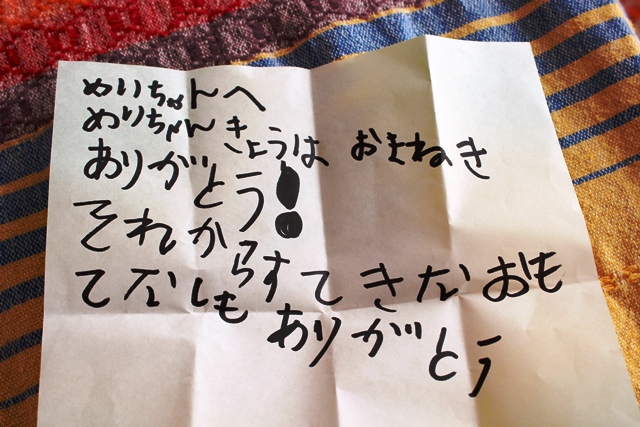 めいちゃんへ
めりちゃんきょうは おまねき
ありがとう!
それから すてきなおも
てなしも
ありがとう